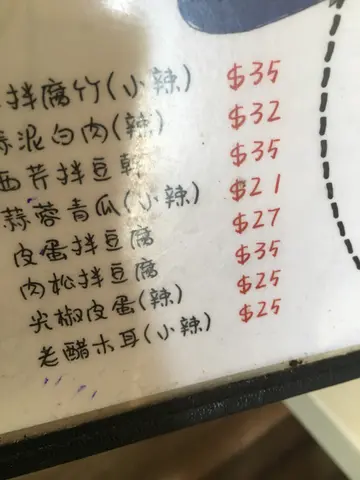 拌腐竹(小辣) $35
泥白肉(辣) $32
西芹拌豆乾 $35
蒜蓉青瓜(小辣) $21
皮蛋拌豆腐 $27
肉松拌豆腐 $35
尖椒皮蛋(辣) $25
老醋木耳(小辣) $25